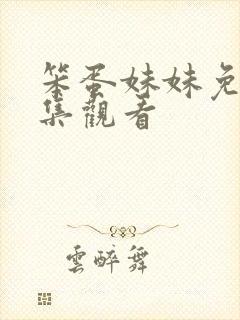 笨蛋妹妹免
集觀看
雲醉舞